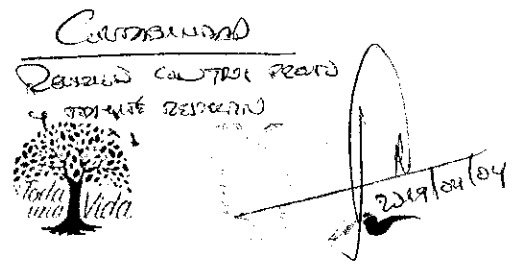 CONTABILIDAD
REVISIÓN CONTROL PREVIO
y TRÁMITE RESPECTIVO
Toda
una Vida
2019/04/04